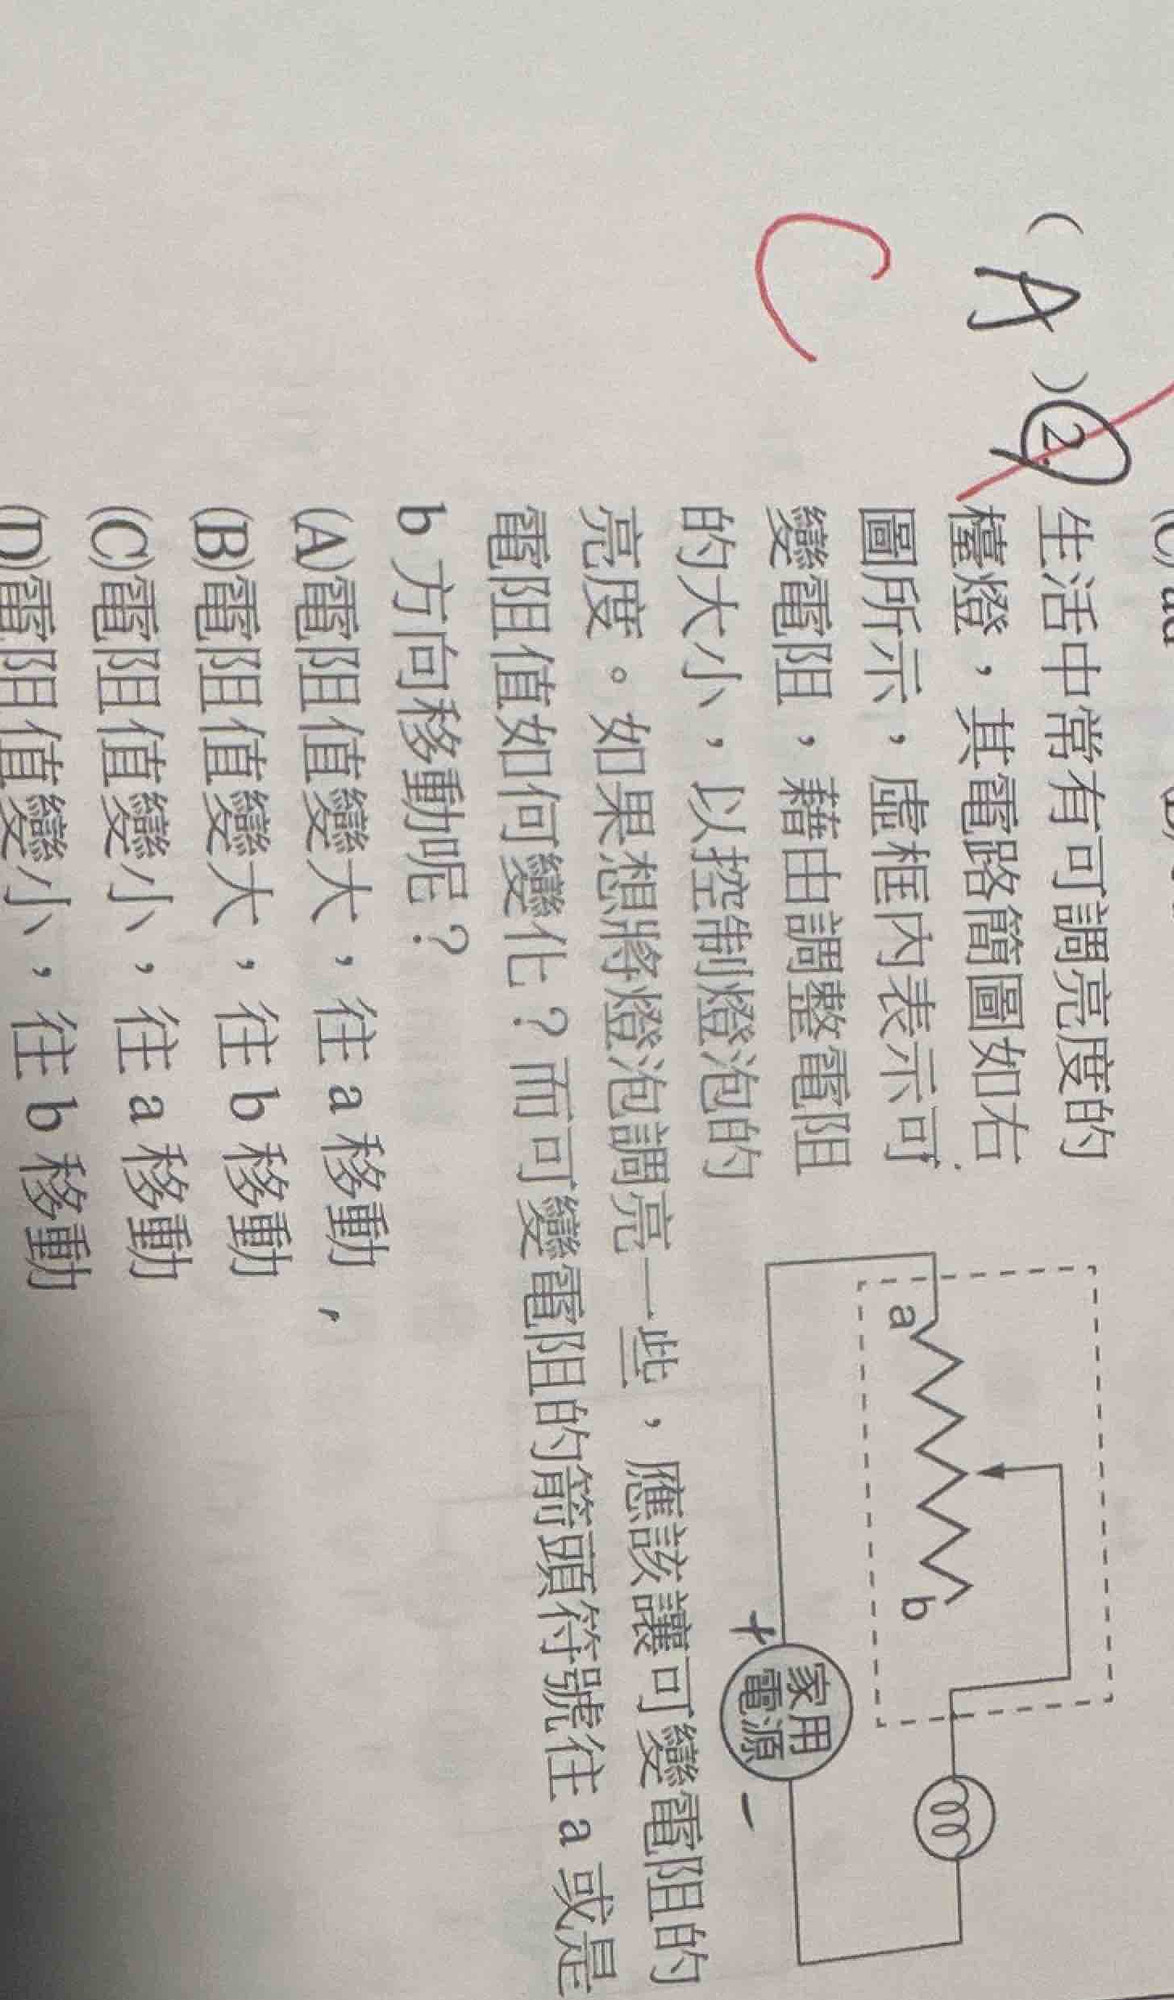 ( A ) 2. 生活中常有可調亮度的
C
檯燈，其電路簡圖如右
圖所示，虛框內表示可
變電阻，藉由調整電阻
的大小，以控制燈泡的
亮度。如果想將燈泡調亮一些，應該讓可變電阻的
電阻值如何變化？而可變電阻的箭頭符號往 a 或是
b 方向移動呢？
(A)電阻值變大，往 a 移動
(B)電阻值變大，往 b 移動
(C)電阻值變小，往 a 移動
(D)電阻值變小，往 b 移動
a
b
+
家用
電源
−